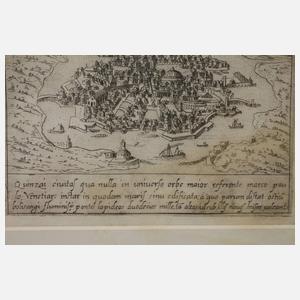 Quinzai civitas qua nulla in universo orbe maior referente marco pau
lo Venetiar: instar in quodam maris sinu edificata a quo parum distat ostiū
fluminis pontes lapideos duodecies mille